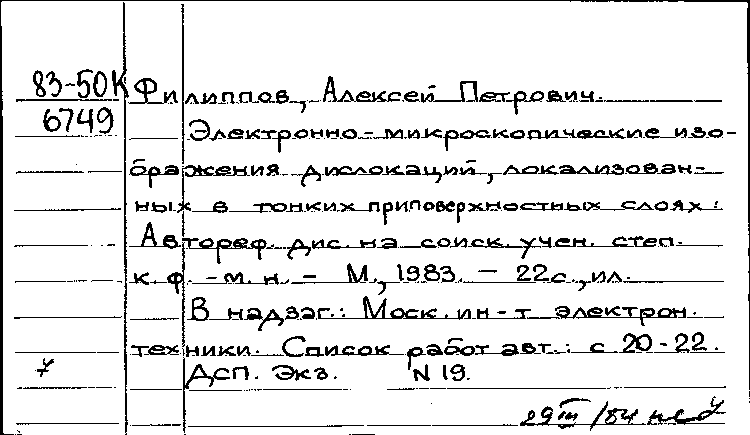 83-50К Филиппов, Алексей Петрович.
6749 Электронно-микроскопические изо-
бражения дислокаций, локализован-
ных в тонких приповерхностных слоях:
Автореф. дис. на соиск. учен. степ.
к. ф.-м. н. - М., 1983. - 22с., ил.
В надзаг.: Моск. ин-т электрон.
техники. Список работ авт.: с. 20-22.
ДСП. Экз. N 19.
29 III /84